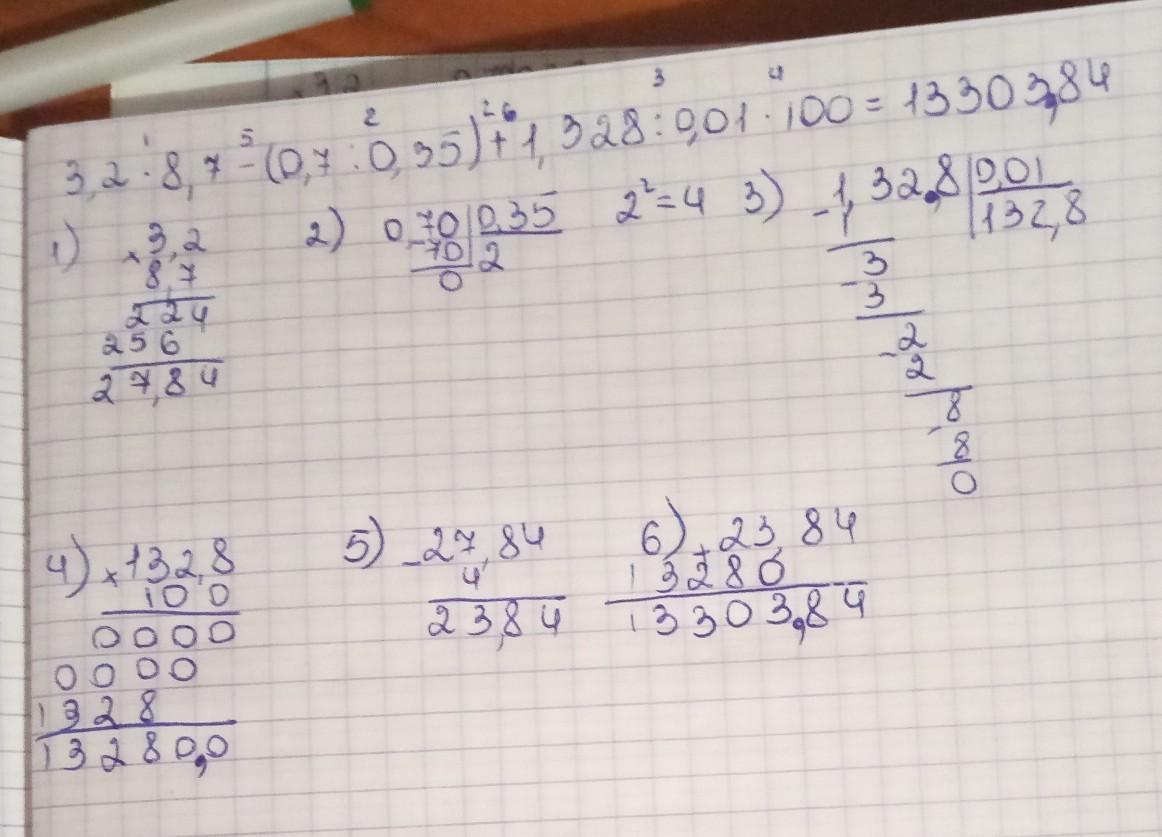 1 5 2 2 6 3 4
3,2 · 8,7 - (0,7 : 0,35)² + 1,328 : 0,01 · 100 = 13303,84
1) × 3,2
8,7
224
256
27,84
2) 0,70 | 0,35
- 70 | 2
0
2² = 4
3) - 1,32,8 | 0,01
1 | 132,8
3
- 3
2
- 2
8
- 8
0
4) × 132,8
100
0000
0000
1328
13280,0
5) - 27,84
4
23,84
6) + 23,84
13280
13303,84